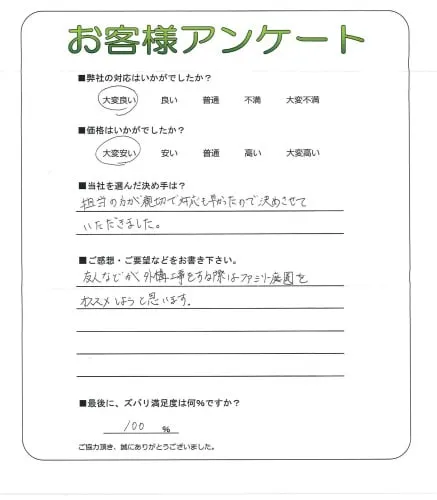 お客様アンケート
■弊社の対応はいかがでしたか?
大変良い 良い 普通 不満 大変不満
■価格はいかがでしたか?
大変安い 安い 普通 高い 大変高い
■当社を選んだ決め手は?
担当の方が親切で対応も早かったので決めさせて
いただきました。
■ご感想・ご要望などをお書き下さい。
友人などが、外構工事をする際はファミリー庭園を
オススメしようと思います。
■最後に、ズバリ満足度は何%ですか?
100 %
ご協力頂き、誠にありがとうございました。